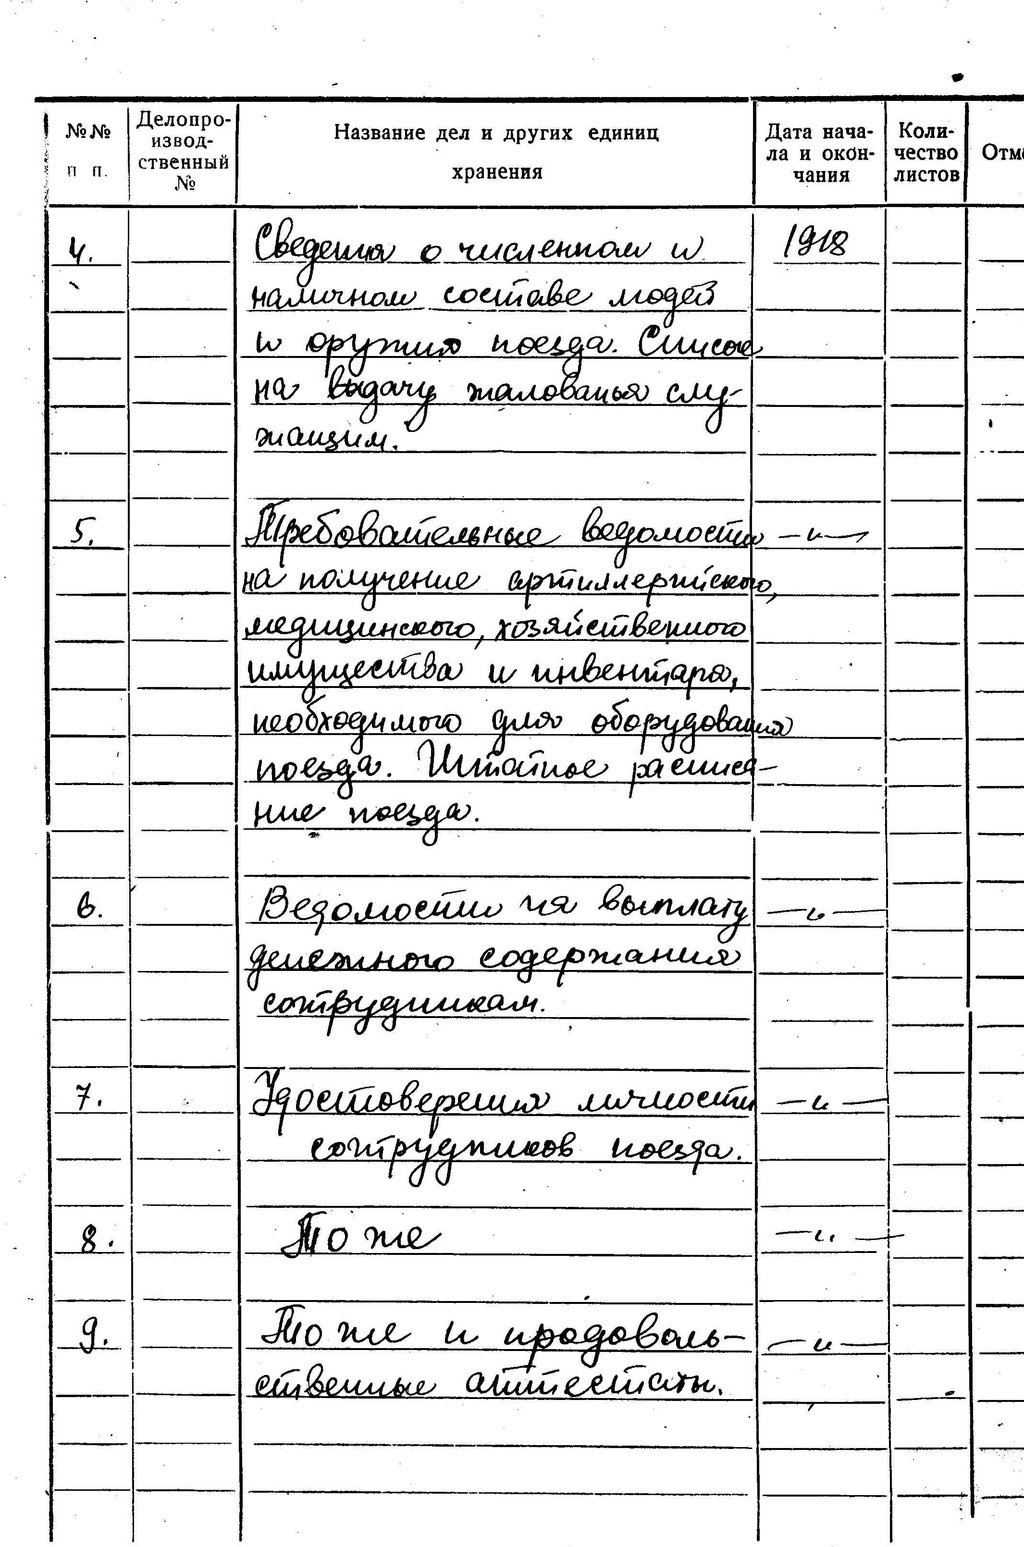 №№ п п.
Делопро-
извод-
ственный
№
Название дел и других единиц
хранения
Дата нача-
ла и окон-
чания
Коли-
чество
листов
Отме
4. Сведения о численном и 1918
наличном составе людей
и оружия поезда. Списки
на выдачу жалованья слу-
жащим.
5. Требовательные ведомости —„—
на получение артиллерийского,
медицинского, хозяйственного
имущества и инвентаря,
необходимого для оборудования
поезда. Штатное расписа-
ние поезда.
6. Ведомости на выплату —„—
денежного содержания
сотрудникам.
7. Удостоверения личности —„—
сотрудников поезда.
8. То же —„—
9. То же и продоволь- —„—
ственные аттестаты.